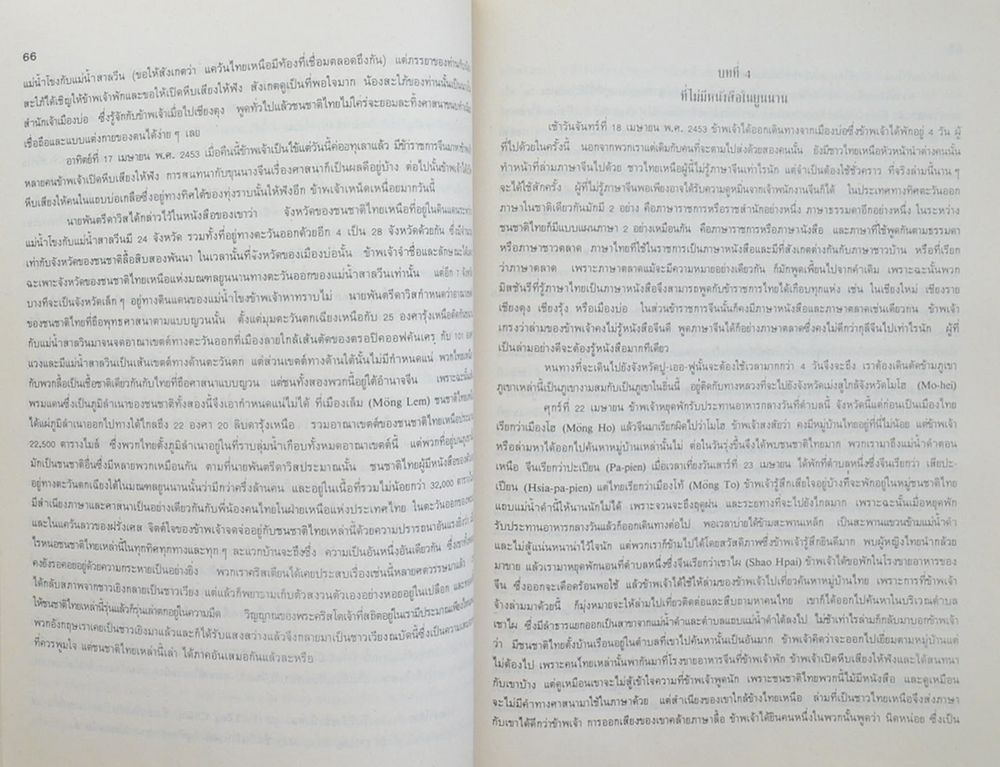 66
แม่น้ำโขงกับแม่น้ำสาลวีน (ขอให้สังเกตว่า แคว้นไทยเหนือมีท้องที่เชื่อมตลอดถึงกัน) แต่ภรรยาของท่าน
สะใภ้ได้เชิญให้ข้าพเจ้าพักและขอให้เปิดหีบเสียงให้ฟัง สังเกตดูเป็นที่พอใจมาก น้องสะใภ้ของท่านนั้น
สำนักเจ้าเมืองบ่อ ซึ่งรู้จักกับข้าพเจ้าเมื่อไปเชียงตุง พูดทั่วไปแล้วชนชาติไทยไม่ใคร่จะยอมละทิ้งศาสนา
เชื่อถือและแบบแต่งกายของตนได้ง่าย ๆ เลย
อาทิตย์ที่ 17 เมษายน พ.ศ. 2453 เมื่อคืนนี้ข้าพเจ้าเป็นไข้แต่วันนี้ค่อยทุเลาแล้ว มีข้าราชการจีน
หลายคนข้าพเจ้าเปิดหีบเสียงให้ฟัง การสนทนากับขุนนางจีนเรื่องศาสนาก็เป็นผลดีอยู่บ้าง ต่อไปนั้นข้าพเจ้าได้
หีบเสียงให้คนในแอบบ่อเกลือซึ่งอยู่ทางทิศใต้ของทุ่งราบนั้นให้ฟังอีก ข้าพเจ้าเหน็ดเหนื่อยมากวันนี้
นายพันตรีดาวิสได้กล่าวไว้ในหนังสือของเขาว่า จังหวัดของชนชาติไทยเหนือที่อยู่ในดินแดนระหว่าง
แม่น้ำโขงกับแม่น้ำสาลวีนมี 24 จังหวัด รวมทั้งที่อยู่ทางตะวันออกด้วยอีก 4 เป็น 28 จังหวัดด้วยกัน
เท่ากับจังหวัดของชนชาติลื้อสิบสองพันนา ในเวลานั้นที่จังหวัดของเมืองบ่อนั้น ข้าพเจ้าจำชื่อและลักษณะได้
ฉะเพาะจังหวัดของชนชาติไทยเหนือแห่งมณฑลยูนนานทางตะวันออกของแม่น้ำสาลวีนเท่านั้น แต่อีก 1 จังหวัด
บางทีจะเป็นจังหวัดเล็ก ๆ อยู่ทางดินแดนของแม่น้ำโขงข้าพเจ้าหาทราบไม่ นายพันตรีดาวิสกำหนดว่าอาณาเขต
ของชนชาติไทยที่ถือพุทธศาสนาตามแบบญวนนั้น ตั้งแต่มุมตะวันตกเฉียงเหนือกับ 25 องศารุ้งเหนือ
กับแม่น้ำสาลวีนมาจนจดอาณาเขตต์ทางตะวันออกที่เมืองลายใกล้เส้นตัดของตรอปิคออฟคันเศร กับ 101
แวงและมีแม่น้ำสาลวีนเป็นเส้นเขตต์ทางด้านตะวันตก แต่ส่วนเขตต์ทางด้านใต้นั้นไม่มีกำหนดแน่ พวกไทยเหนือ
กับพวกลื้อเป็นเชื้อชาติเดียวกันกับไทยที่ถือศาสนาแบบญวน แต่ชนทั้งสองพวกนี้อยู่ใต้อำนาจจีน เพราะฉะนั้น
พรมแดนซึ่งเป็นภูมิลำเนาของชนชาติทั้งสองนี้จึงเอากำหนดแน่ไม่ได้ ที่เมืองเล็ม (Möng Lem) ชนชาติไทย
ได้แผ่ภูมิลำเนาออกไปทางใต้ไกลถึง 22 องศา 20 ลิบดารุ้งเหนือ รวมอาณาเขตต์ของชนชาติไทยเหนือประมาณ
22,500 ตารางไมล์ ซึ่งพวกไทยตั้งภูมิลำเนาอยู่ในที่ราบลุ่มน้ำเกือบทั้งหมดอาณาเขตต์นี้ แต่พวกที่อยู่บน
มักเป็นชนชาติอื่นซึ่งมีหลายพวกเหมือนกัน ตามที่นายพันตรีดาวิสประมาณนั้น ชนชาติไทยผู้มีหนังสือของตน
อยู่ทางตะวันตกเฉียงใต้ในมณฑลยูนนานนั้นว่ามีกว่าครึ่งล้านคน และอยู่ในเนื้อที่รวมไม่น้อยกว่า 32,000 ตารางไมล์
มีสำเนียงภาษาและศาสนาเป็นอย่างเดียวกันกับพี่น้องคนไทยในฝ่ายเหนือแห่งประเทศไทย ในตะวันออกของ
และในแคว้นลาวของฝรั่งเศส จิตต์ใจของข้าพเจ้าจดจ่ออยู่กับชนชาติไทยเหล่านี้ด้วยความปรารถนาอันแรงยิ่งว่า
ไรหนอชนชาติไทยเหล่านี้ในทุกทิศทุกทางและทุก ๆ ละแวกบ้านจะถึงซึ่ง ความเป็นอันหนึ่งอันเดียวกัน
คงยังรอคอยอยู่ด้วยความกระหายเป็นอย่างยิ่ง พวกเราคริสเตียนได้เคยประสบเรื่องเช่นนี้หลายศตวรรษมาแล้ว
ได้กลับสภาพจากชาวเยิงกลายเป็นชาวเวียง แต่แล้วก็พยายามเก็บตัวสงวนตัวเองอย่างหอยอยู่ในเปลือก
ให้ชนชาติไทยเหล่านี้รุ่นแล้วรุ่นเล่าตกอยู่ในความมืด วิญญาณของพระคริสโตเจ้าที่สถิตอยู่ในเรามีประมาณเพียงไหน
พวกอังกฤษเราเคยเป็นชาวเยิงมาแล้วและก็ได้รับแสงสว่างแล้วจึงกลายมาเป็นชาวเวียงณบัดนี้ซึ่งเป็นความ
ที่ควรพูมใจ แต่ชนชาติไทยเหล่านี้เล่า ได้ภาคอันเสมอกันแล้วละหรือ
บทที่ 4
ที่ไม่มีหนังสือในยูนนาน
เช้าวันจันทร์ที่ 18 เมษายน พ.ศ. 2453 ข้าพเจ้าได้ออกเดินทางจากเมืองบ่อซึ่งข้าพเจ้าได้พักอยู่ 4 วัน ผู้
ที่ไปด้วยในครั้งนี้ นอกจากพวกเราแต่เดิมกับคนที่จะตามไปส่งด้วยสองคนนั้น ยังมีชาวไทยเหนือหัวหน้านำต่างคนนั้น
ทำหน้าที่ล่ามภาษาจีนไปด้วย ชาวไทยเหนือผู้นี้ไม่รู้ภาษาจีนเท่าไรนัก แต่จำเป็นต้องใช้ชั่วคราว ที่จริงล่ามนี้นาน ๆ
จะได้ใช้สักครั้ง ผู้ที่ไม่รู้ภาษาจีนพอเพียงอาจได้รับความดูหมิ่นจากเจ้าพนักงานจีนก็ได้ ในประเทศทางทิศตะวันออก
ภาษาในชาติเดียวกันมักมี 2 อย่าง คือภาษาราชการหรือราชสำนักอย่างหนึ่ง ภาษาธรรมดาอีกอย่างหนึ่ง ในระหว่าง
ชนชาติไทยก็มีแบบแผนภาษา 2 อย่างเหมือนกัน คือภาษาราชการหรือภาษานังสือ และภาษาที่ใช้พูดกันตามธรรมดา
หรือภาษาชาวตลาด ภาษาไทยที่ใช้ในราชการเป็นภาษาหนังสือและมีที่สังเกตต่างกันกับภาษาชาวบ้าน หรือที่เรียก
ว่าภาษาตลาด เพราะภาษาตลาดแม้จะมีความหมายอย่างเดียวกัน ก็มักพูดเพี้ยนไปจากคำเดิม เพราะฉะนั้นพวก
มิสชันรีที่รู้ภาษาไทยเป็นภาษาหนังสือจึงสามารถพูดกับข้าราชการไทยได้เกือบทุกแห่ง เช่น ในเชียงใหม่ เชียงราย
เชียงตุง เชียงรุ้ง หรือเมืองบ่อ ในส่วนข้าราชการจีนนั้นก็คงมีภาษาหนังสือและภาษาตลาดเช่นเดียวก่น ข้าพเจ้า
เกรงว่าล่ามของข้าพเจ้าคงไม่รู้หนังสือจีนดี พูดภาษาจีนได้ก็อย่างภาษาตลาดซึ่งคงไม่ดีกว่ากุลีจีนไปเท่าไรนัก ผู้ที่
เป็นล่ามอย่างดีจะต้องรู้หนังสือมากทีเดียว
หนทางที่จะเดินไปยังจังหวัดปู-เออ-ฟูนั้นจะต้องใช้เวลามากกว่า 4 วันจึงจะถึง เราต้องเดินตัดข้ามภู
ภูเขาเหล่านี้เป็นภูเขางามสมกับเป็นภูเขาในยินนี้ อยู่ติดกับทางหลวงที่จะไปยังจังหวัดเม่งสูใกล้จังหวัดโมโฮ่ (Mo-hei)
ศุกร์ที่ 22 เมษายน ข้าพเจ้าหยุดพักรับประทานอาหารกลางวันที่ตำบลนี้ จังหวัดนี้แต่ก่อนเป็นเมืองไทย
เรียกว่าเมืองโฮ (Möng Ho) แล้วจีนมาเรียกผิดไปว่าโมโฮ่ ข้าพเจ้าสงสัยว่า คงมีหมู่บ้านไทยอยู่ที่นี่ไม่น้อย แต่ข้าพเจ้า
หรือล่ามหาได้ออกไปค้นหาหมู่บ้านเหล่านั้นไม่ ต่อในวันรุ่งขึ้นจึงได้พบชนชาติไทยมาก พวกเรามาถึงแม่น้ำดำตอน
เหนือ จีนเรียกว่าปะเปียน (Pa-pien) เมื่อเวลาเที่ยงวันเสาร์ที่ 23 เมษายน ได้พักที่ตำบลหนึ่งซึ่งจีนเรียกว่า เสียปะ-
เปียน (Hsia-pa-pien) แต่ไทยเรียกว่าเมืองโท้ (Möng To) ข้าพเจ้ารู้สึกเสียใจอยู่บ้างที่จะพักอยู่ในหมู่ชนชาติไทย
แถบแม่น้ำดำนี้ให้นานนักไม่ได้ เพราะจวนจะถึงฤดูฝน และระยะทางที่จะไปยังไกลมาก เพราะฉะนั้นเมื่อหยุดพัก
รับประทานอาหารกลางวันแล้วก็ออกเดินทางต่อไป พอเวลาบ่ายได้ข้ามสะพานเหล็ก เป็นสะพานแขวนข้ามแม่น้ำดำ
และไม่สู้แน่นหนาน่าไว้ใจนัก แต่พวกเราก็ข้ามไปได้โดยสวัสดิภาพซึ่งข้าพเจ้ารู้สึกยินดีมาก พบผู้หญิงไทยนำกล้วย
มาขาย แล้วเรามาหยุดพักนอนที่ตำบลหนึ่งซึ่งจีนเรียกว่าเชาไผ (Shao Hpai) ข้าพเจ้าได้ขอพักในโรงขายอาหารของ
จีน ซึ่งออกจะเดือดร้อนพอใช้ แล้วข้าพเจ้าได้ใช้ให้ล่ามของข้าพเจ้าไปเที่ยวค้นหาหมู่บ้านไทย เพราะการที่ข้าพเจ้า
จ้างล่ามมาด้วยนี้ ก็มุ่งหมายจะให้ล่ามไปเที่ยวติดต่อและสืบถามหาคนไทย เขาก็ได้ออกไปค้นหาในบริเวณตำบล
เชาไผ ซึ่งมีลำธารแยกออกเป็นสาขาจากแม่น้ำดำและตำบลแถบแม่น้ำดำใต้ลงไป ไม่ช้าเท่าไรล่ามก็กลับมาบอกข้าพเจ้า
ว่า มีชนชาติไทยตั้งบ้านเรือนอยู่ในตำบลที่เขาไปค้นหานั้นเป็นอันมาก ข้าพเจ้าคิดว่าจะออกไปเยี่ยมตามหมู่บ้านแต่
ไม่ต้องไป เพราะคนไทยเหล่านั้นพากันมาที่โรงขายอาหารจีนที่ข้าพเจ้าพัก ข้าพเจ้าเปิดหีบเสียงให้ฟังและได้สนทนา
กับเขาบ้าง แต่ดูเหมือนเขาจะไม่สู้เข้าใจความที่ข้าพเจ้าพูดนัก เพราะชนชาติไทยพวกนี้ไม่มีหนังสือ และดูเหมือน
จะไม่มีคำทางศาสนามาใช้ในภาษาด้วย แต่สำเนียงของเขาใกล้ข้างไทยเหนือ ล่ามที่เป็นชาวไทยเหนือจึงส่งภาษา
กับเขาได้ดีกว่าข้าพเจ้า การออกเสียงของเขาคล้ายภาษาลื้อ ข้าพเจ้าได้ยินคนหนึ่งในพวกนั้นพูดว่า นิดหน่อย ซึ่งเป็น